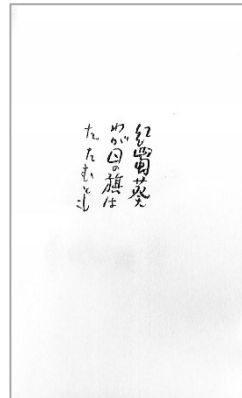 紅蜀葵
わが日の旗は
たたむとも